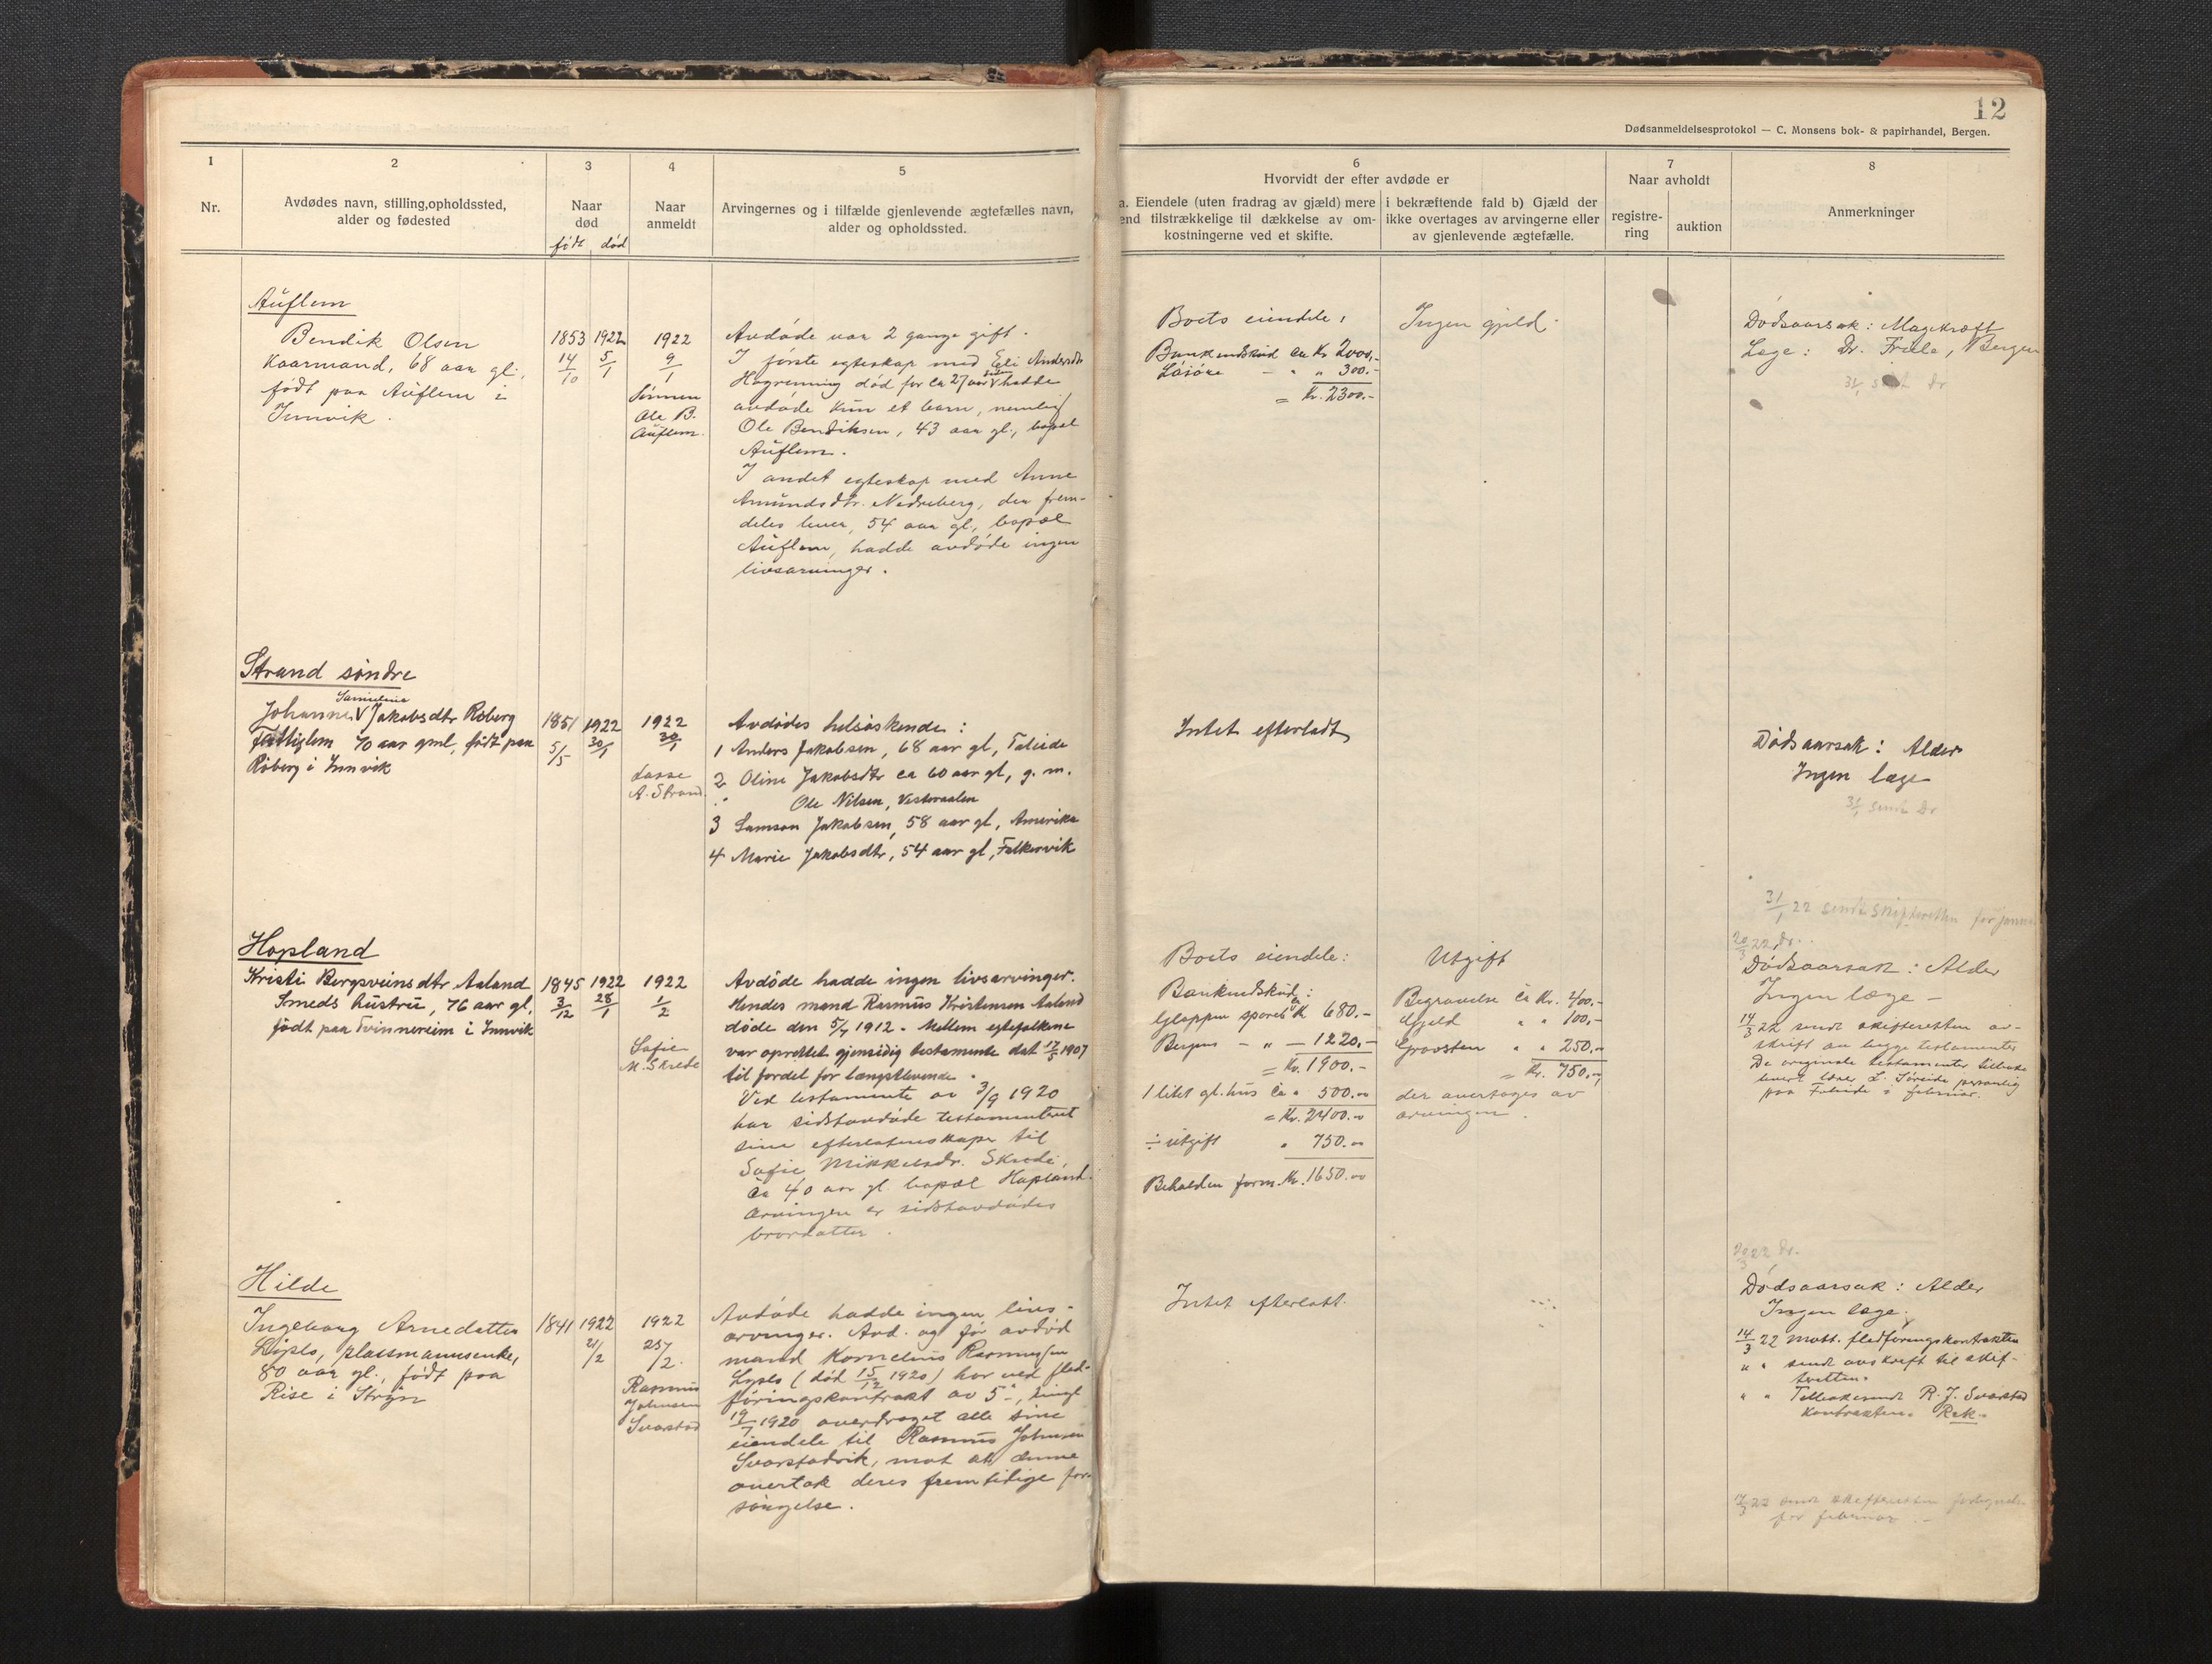 12
Dødsanmeldelsesprotokol — C. Monsens bok- & papirhandel, Bergen.
1
Nr.
2
Avdødes navn, stilling, opholdssted,
alder og fødested
3
Naar
død
født død
4
Naar
anmeldt
5
Arvingernes og i tilfælde gjenlevende ægtefælles navn,
alder og opholdssted.
6
Hvorvidt der efter avdøde er
a. Eiendele (uten fradrag av gjæld) mere
end tilstrækkelige til dækkelse av om-
kostningerne ved et skifte.
i bekræftende fald b) Gjæld der
ikke overtages av arvingerne eller
av gjenlevende ægtefælle.
7
Naar avholdt
registre-
ring
auktion
8
Anmerkninger
Auflem
Bendik Olsen
Kaarmand, 68 aar gl.,
født paa Auflem i
Innvik.
1853 1922
14/10 5/1
1922
9/1
Sønnen
Ole B.
Auflem.
Avdøde var 2 gange gift.
I første egteskap med Eli Andersdtr
Høgrenning død for ca 27 aar siden hadde
avdøde kun et barn, nemlig
Ole Bendiksen, 43 aar gl., bopæl
Auflem.
I andet egteskap med Anne
Amundsdtr. Nedreberg, der frem-
deles lever, 54 aar gl., bopæl
Auflem, hadde avdøde ingen
livsarvinger.
Boets eiendele:
Bankindskud ca Kr 2000,-
Løsøre - " " 300.-
= Kr. 2300.-
Ingen gjeld.
Dødsaarsak: Magekræft
Læge: Dr. Friele, Bergen
31/1 sendt Dr
Strand søndre
Johanne Samueline Jakobsdtr Roberg
Fattiglem 70 aar gml, født paa
Roberg i Innvik
1851 1922
5/5 30/1
1922
30/1
Lasse
A. Strand.
Avdødes helsøskende:
1 Anders Jakobsen, 68 aar gl, Faleide
2 Oline Jakobsdtr ca 60 aar gl, g. m.
Ole Nilsen, Vesteraalen
3 Samson Jakobsen, 58 aar gl, Amerika
4 Marie Jakobsdtr, 54 aar gl,
Intet efterladt
Dødsaarsak: Alder
Ingen læge
31/1 sendt Dr
31/1 22 sendt skifteretten for januar
Hopland
Kristi Bergsveinsdtr Aaland
Smeds hustru, 76 aar gl.
født paa Tvinnereim i Innvik
1845 1922
3/12 28/1
1922
1/2
Sofie
M. Skrede
Avdøde hadde ingen livsarvinger.
Hendes mand Rasmus Kristensen Aaland
døde den 5/4 1912. Mellem egtefolkene
var oprettet gjensidig testamente dat 17/5 1907
til fordel for længstlevende.
Ved testamente av 3/9 1920
har sidstavdøde testamenteret
sine efterlatenskaper til
Sofie Mikkelsdr. Skrede,
ca 40 aar gl. bopæl Hopland.
Arvingen er sidstavdødes
brordatter.
Boets eiendele:
Bankindskud:
Gloppen spareb ca K 680.-
Bergens - " - 1220.-
= Kr. 1900.-
1 litet gl. hus ca " 500.00
= Kr. 2400.00
÷ utgift " 750.00
Beholden form. Kr. 1650.00
Utgift
Begravelse ca Kr. 400.-
Gjeld " " 100.-
Gravsten " " 250.-
= Kr. 750.-
der overtages av
arvingen.
20/3 22 Dr.
Dødsaarsak: Alder
Ingen læge -
14/3 22 sendt skifteretten av-
skrift av begge testamenter
De originale testamenter tilbake
levert lærer L. Søreide personlig
paa Faleide i februar.
Hilde
Ingeborg Arnedatter
plassmannsenke,
80 aar gl., født paa
Rise i Stryn
1841 1922
2/2
1922
25/2.
Rasmus
Johnsen
Svarstad
Avdøde hadde ingen livs-
arvinger. Avd. og før avdød
mand Kornelius Rasmussen
(død 15/12 1920) har ved fled-
føringskontrakt av 5-, tingl
19/7 1920 overdraget alle sine
eiendele til Rasmus Johnsen
Svarstadvik, mot at denne
overtok deres fremtidige for-
sørgelse.
Intet efterlatt.
20/3 22 Dr.
Dødsaarsak: Alder
Ingen læge.
14/3 22 Mott. fledføringskontrakten
" " sendt avskrift til skif-
teretten.
" " Tilbakesendt R. J. Svarstad
kontrakten. Rek.
sendt skifteretten
for februar.-